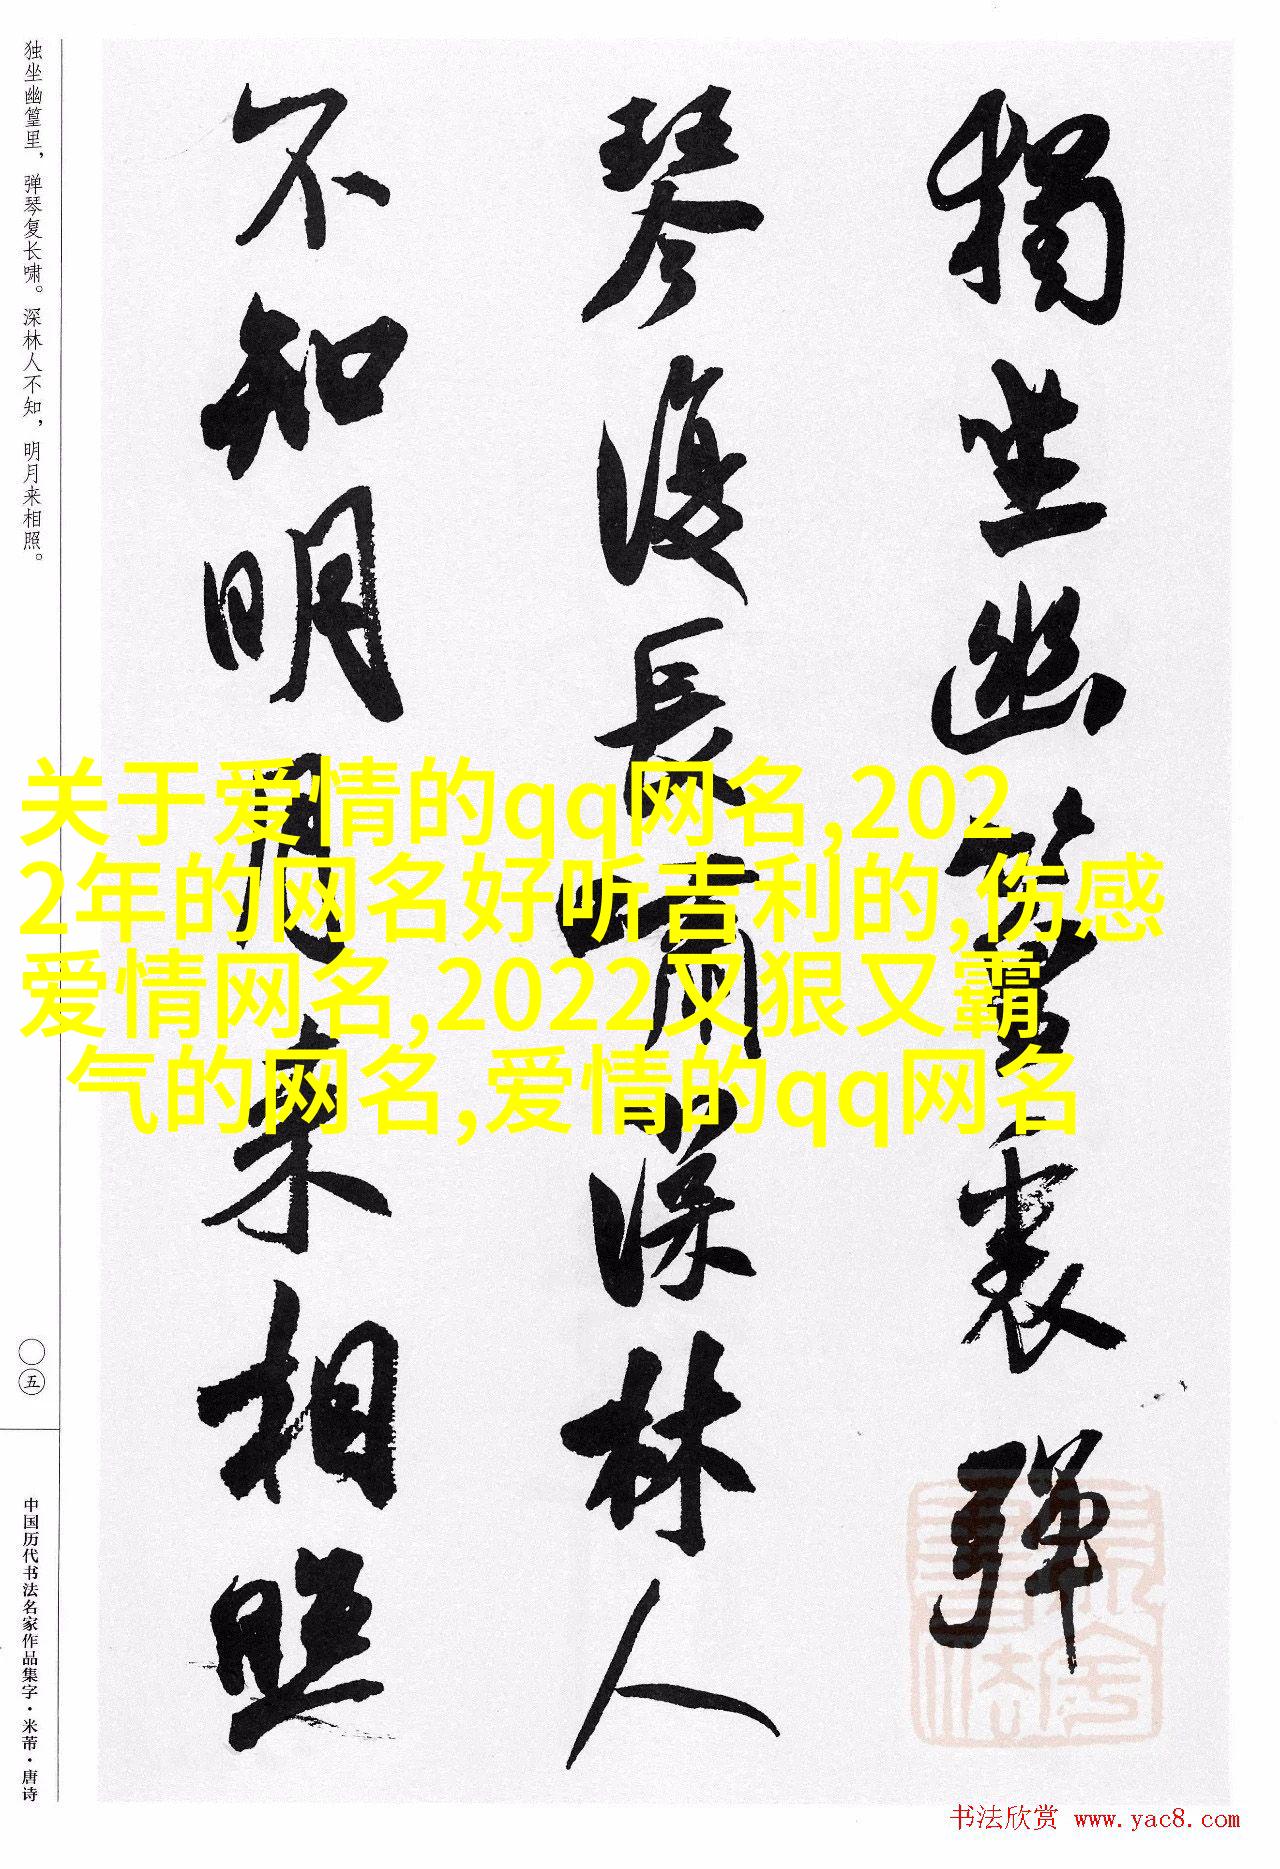 獨坐幽篁裏彈
琴復長嘯深林人
不知明月來相照
独坐幽篁里，弹琴复长啸。深林人不知，明月来相照。
〇五
中国历代书法名家作品集字·米芾·唐诗
关于爱情的qq网名,202
2年的网名好听吉利的,伤感
爱情网名,2022又狠又霸
气的网名,爱情的qq网名
书法欣赏 www.yac8.com